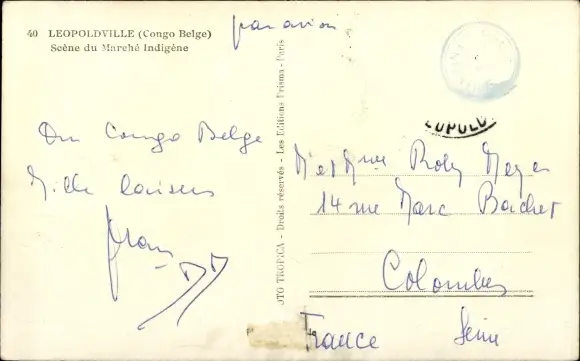 40 LEOPOLDVILLE (Congo Belge)
Scène du Marché Indigène
par avion
LEOPOLD
Du Congo Belge
Mille baisers
OTO TROPICA - Droits réservés - Les Editions Prisma - Paris
M et Mme Roby Meyer
14 rue Marc Bachet
Colombes
France Seine